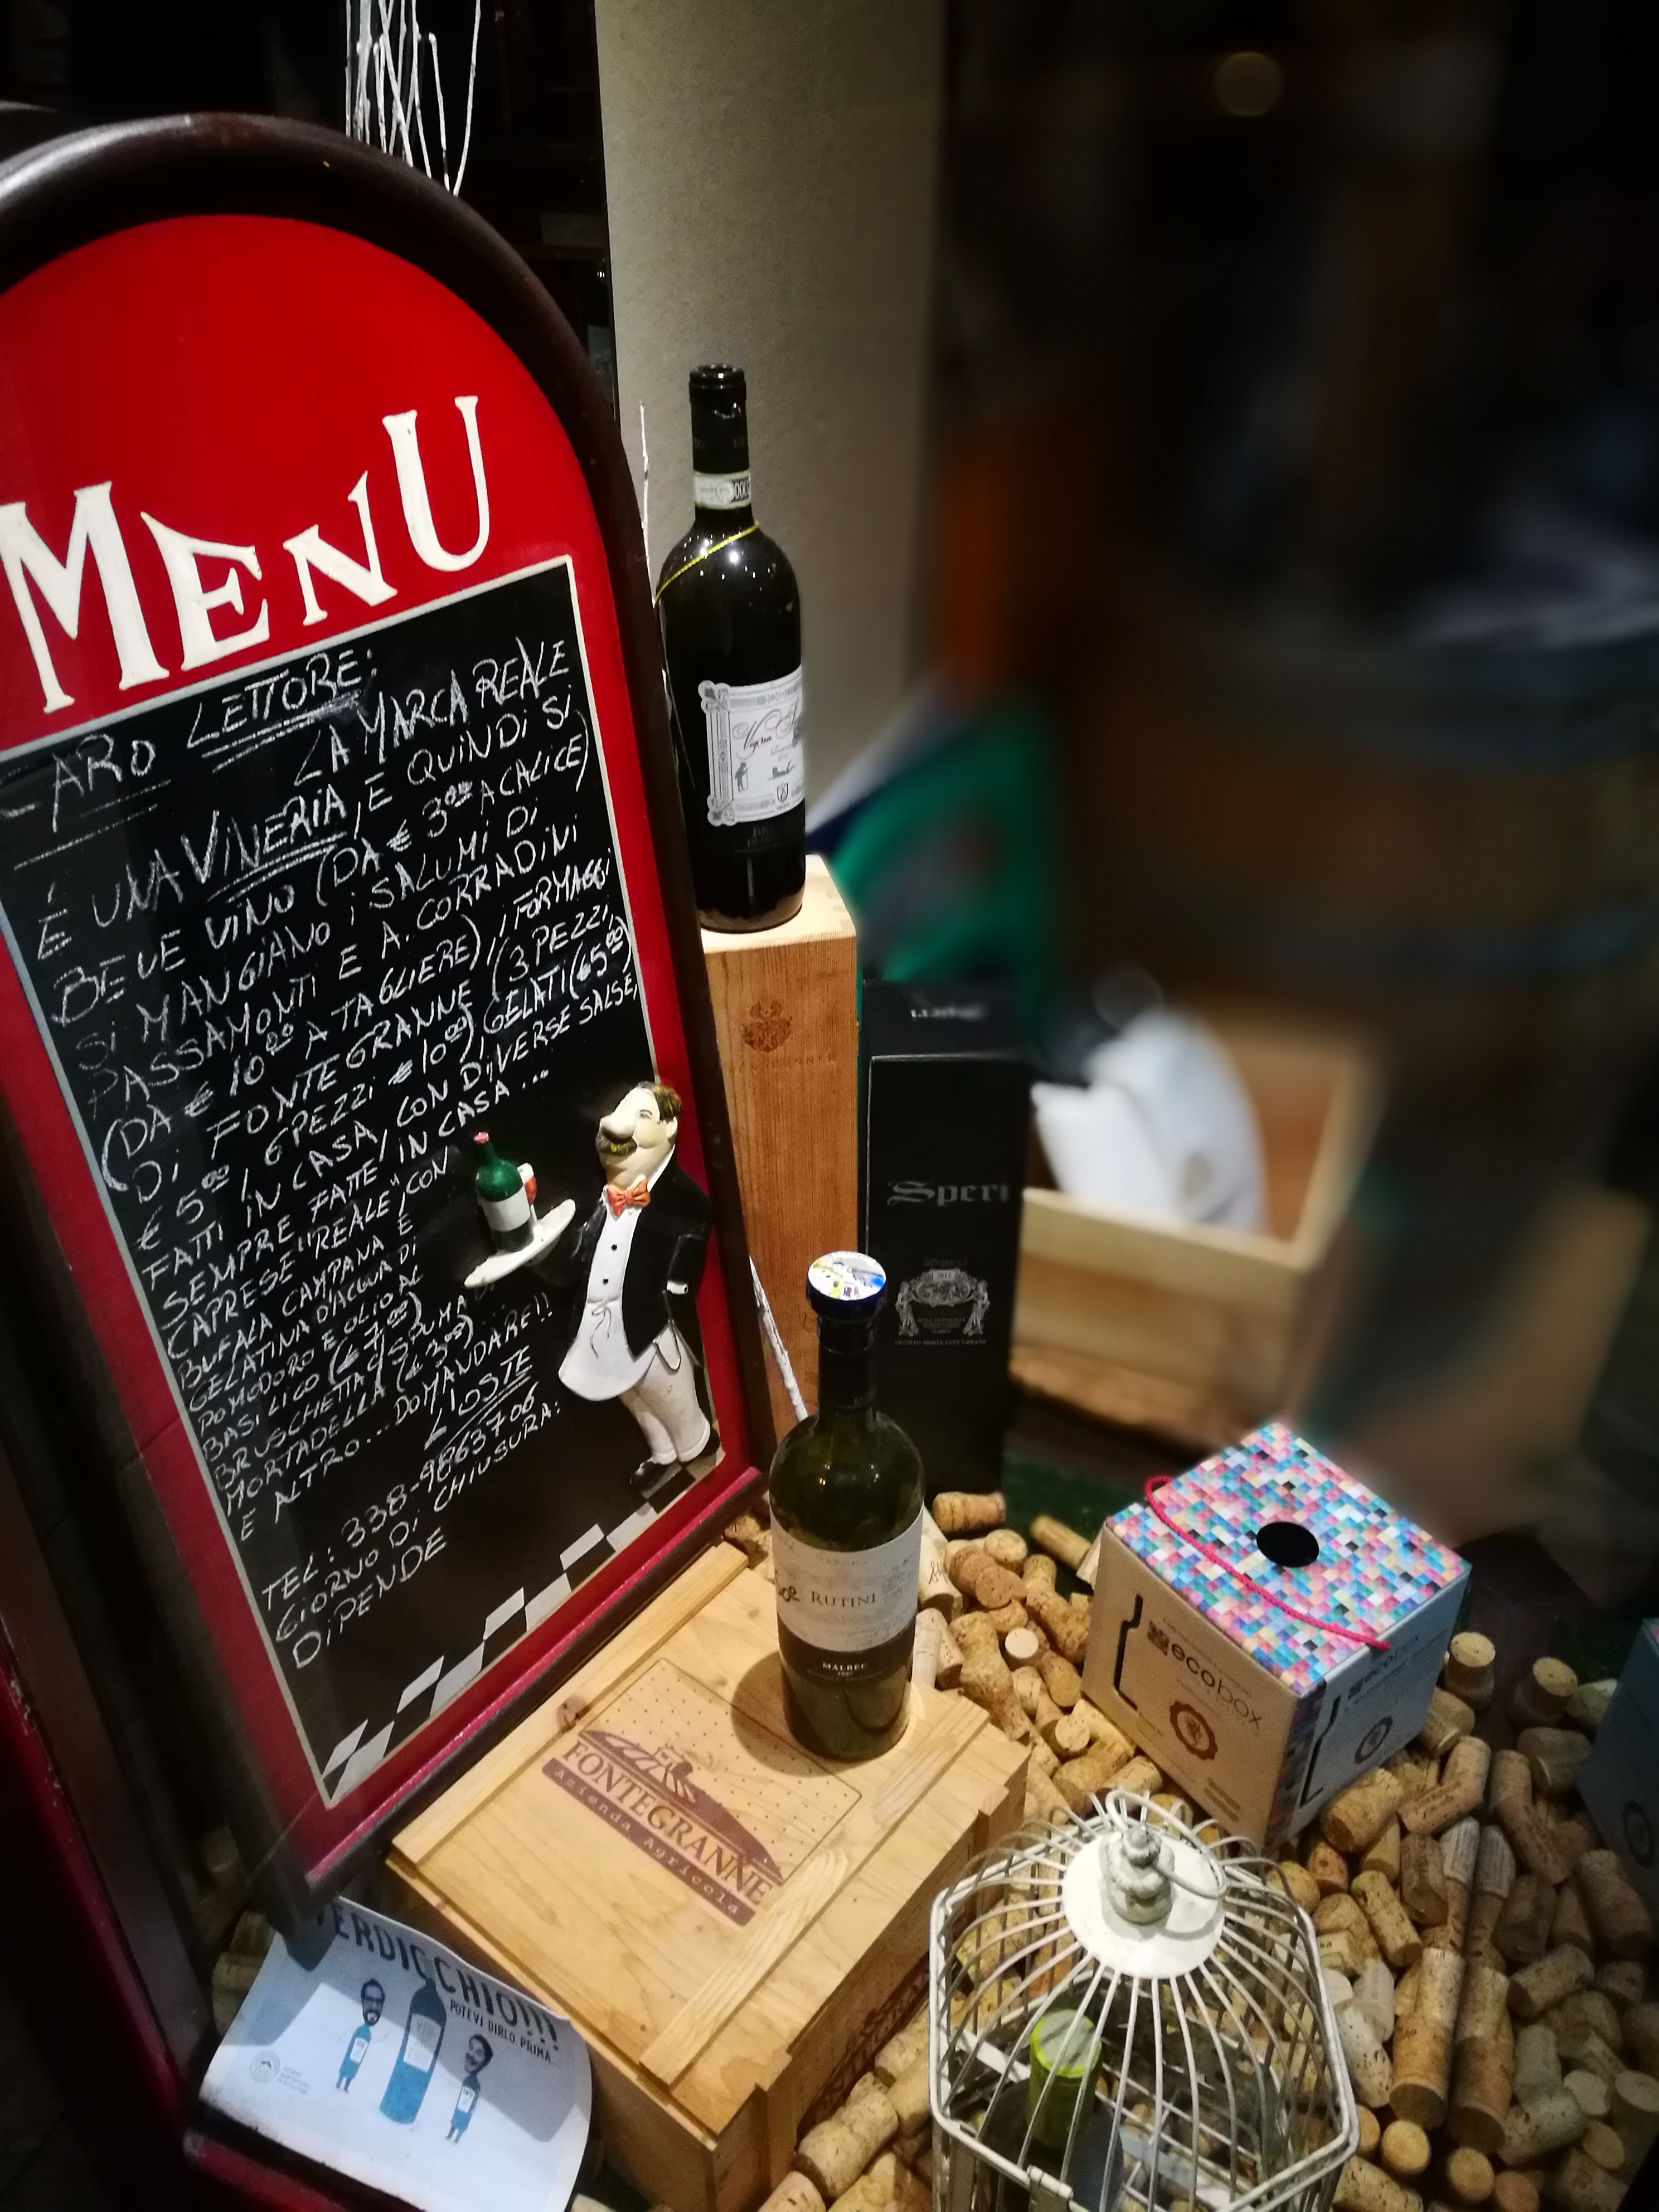 MENU
CARO LETTORE:
LA MARCA REALE
È UNA VINERIA, E QUINDI SI
BEVE VINO (DA € 3,00 A CALICE)
SI MANGIANO I SALUMI DI
PASSAMONTI E A. CORRADINI
(DA € 10,00 A TAGLIERE), I FORMAGGI
DI FONTEGRANNE (3 PEZZI,
€ 5,00, 6 PEZZI € 10,00), GELATI (€ 5,00)
FATTI IN CASA, CON DIVERSE SALSE,
SEMPRE FATTE IN CASA ...
CAPRESE "REALE", CON
BUFALA CAMPANA E
GELATINA D'ACQUA DI
POMODORO E OLIO AL
BASILICO (€ 7,00)
BRUSCHETTA C/ SPUMA DI
MORTADELLA (€ 3,00)
E ALTRO... DOMANDARE!!
L'OSTE
TEL: 338-9863706
GIORNO DI CHIUSURA:
DIPENDE
Speri
RUTINI
MALBEC
FONTEGRANNE
Azienda Agricola
ecobox
ecobox
VERDICCHIO!!!
POTEVI DIRLO PRIMA.